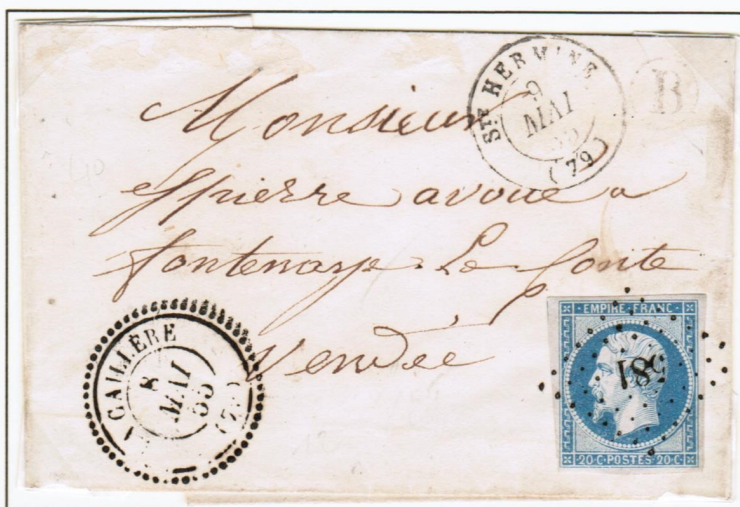 STE HERMINE
9
MAI
55
(79)
B
Monsieur
espierre avoue a
fontenaye Le Conte
Vendée
LA CAILLÈRE
8
MAI
55
(79)
EMPIRE FRANC
581
20·C·POSTES·20·C